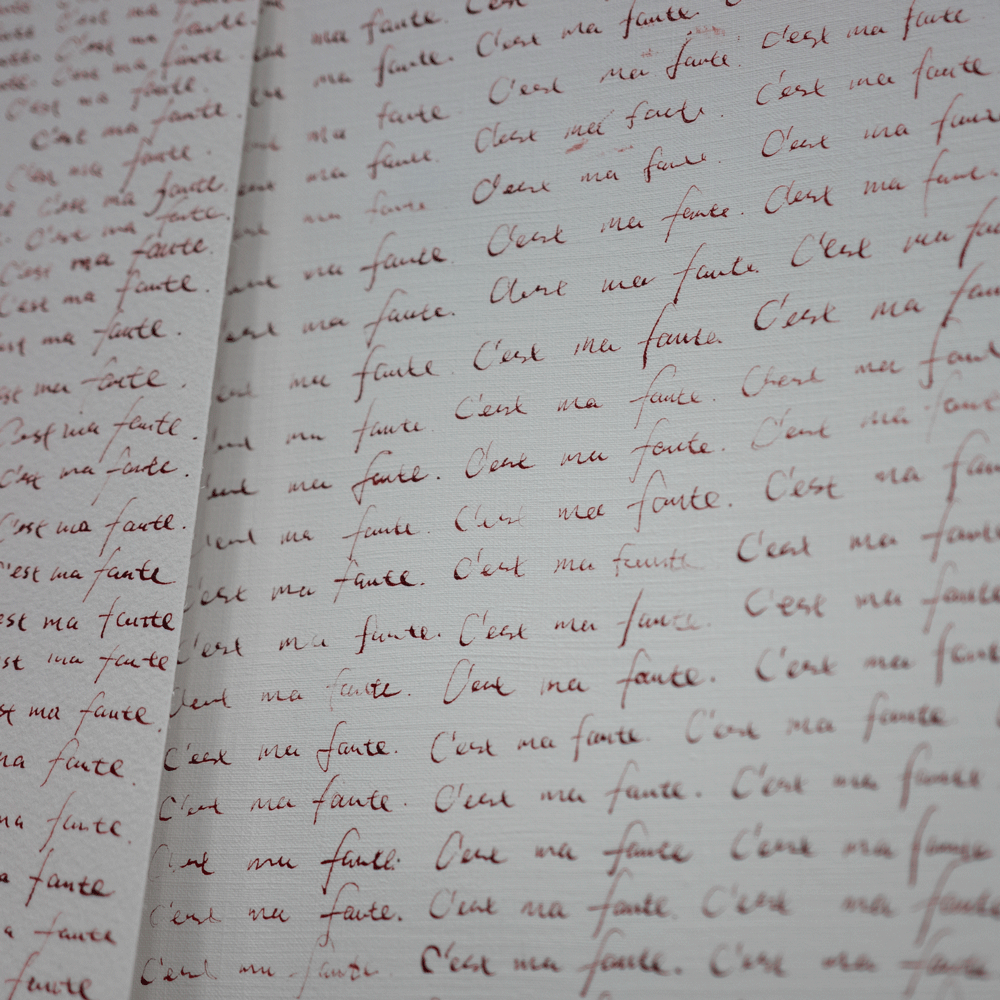 C'est ma faute.
C'est ma faute.
C'est ma faute.
C'est ma faute.
C'est ma faute.
C'est ma faute.
C'est ma faute.
C'est ma faute.
C'est ma faute.
C'est ma faute.
est ma faute.
est ma faute.
C'est ma faute.
C'est ma faute.
C'est ma faute.
C'est ma faute
est ma faute
st ma faute
st ma faute.
ma faute.
ma faute.
a faute
a faute
faute
ma faute. C'est
ma faute. C'est ma faute.
ma faute. C'est ma faute. C'est ma faute
ma faute. C'est ma faute. C'est ma faute
ma faute C'est ma faute. C'est ma faute
ma faute. C'est ma faute. C'est ma faute.
est ma faute. C'est ma faute. C'est ma
ma faute. C'est ma faute. C'est ma
ma faute. C'est ma faute. C'est ma
ma faute. C'est ma faute. C'est ma faute
C'est ma faute. C'est ma faute. C'est ma
C'est ma faute. C'est ma faute C'est ma faute
C'est ma faute. C'est ma faute. C'est ma faute
C'est ma faute. C'est ma faute. C'est ma faute
C'est ma faute. C'est ma faute. C'est ma faute
C'est ma faute. C'est ma faute. C'est ma faute
C'est ma faute. C'est ma faute C'est ma faute
C'est ma faute. C'est ma faute. C'est ma faute
C'est ma faute. C'est ma faute. C'est ma faute